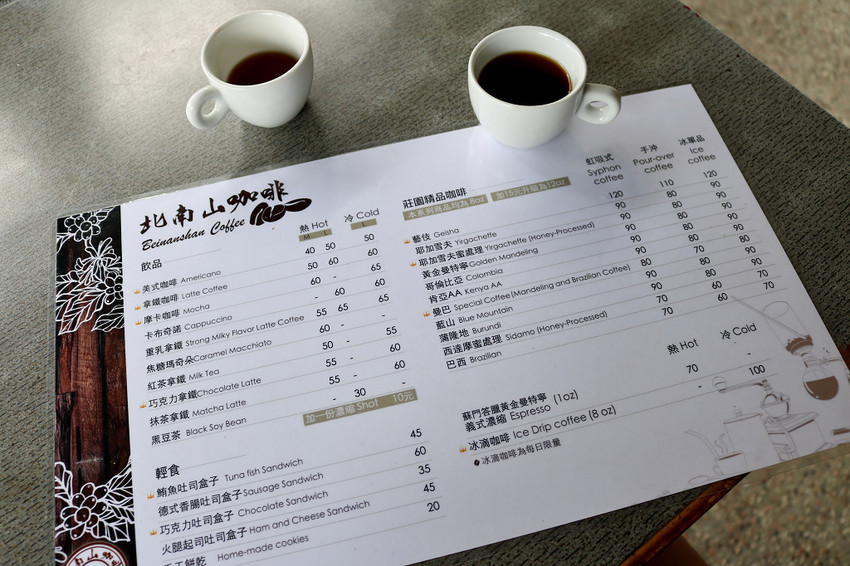 北南山咖啡
Beinanshan Coffee
飲品
熱 Hot
冷 Cold
M L
L
美式咖啡 Americano 40 50 50
拿鐵咖啡 Latte Coffee 50 60 60
摩卡咖啡 Mocha 60 - 65
卡布奇諾 Cappuccino - 60 -
重乳拿鐵 Strong Milky Flavor Latte Coffee 55 65 65
焦糖瑪奇朵Caramel Macchiato 60 - -
紅茶拿鐵 Milk Tea 50 - 55
巧克力拿鐵Chocolate Latte 55 - 60
抹茶拿鐵 Matcha Latte 55 - 60
黑豆茶 Black Soy Bean - 30 -
加一份濃縮 Shot 10元
輕食
鮪魚吐司盒子 Tuna fish Sandwich 45
德式香腸吐司盒子Sausage Sandwich 60
巧克力吐司盒子 Chocolate Sandwich 35
火腿起司吐司盒子Ham and Cheese Sandwich 45
手工餅乾 Home-made cookies 20
莊園精品咖啡
本系列商品均為 8oz
加15元升級為12oz
虹吸式
Syphon
coffee
手沖
Pour-over
coffee
冰單品
Ice
coffee
藝伎 Geisha 120 110 120
耶加雪夫 Yirgacheffe 90 80 90
耶加雪夫蜜處理 Yirgacheffe (Honey-Processed) 90 80 90
黃金曼特寧Golden Mandeling 90 80 90
哥倫比亞 Colombia 90 80 90
肯亞AA Kenya AA 90 80 90
曼巴 Special Coffee(Mandeling and Brazilian Coffee)
藍山 Blue Mountain
蒲隆地 Burundi
西達摩蜜處理 Sidamo (Honey-Processed)
巴西 Brazilian 70 60 70
熱 Hot
冷 Cold
蘇門答臘黃金曼特寧
義式濃縮 Espresso (1oz) 70 -
冰滴咖啡 Ice Drip coffee (8 oz) - 100
冰滴咖啡為每日限量